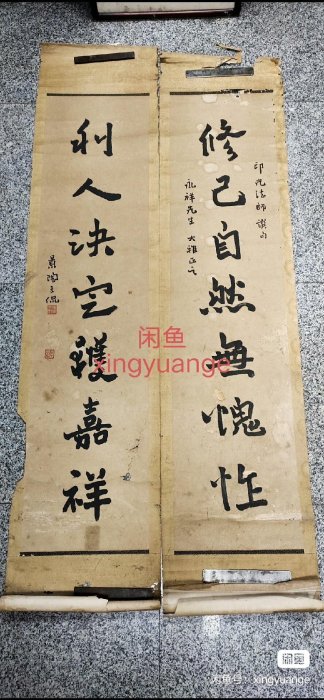 印光法師
修己自然無愧怍
永祥先生 大雅正之
利人決定獲嘉祥
闲鱼
xingyuange
闲鱼
闲鱼号：xingyuange